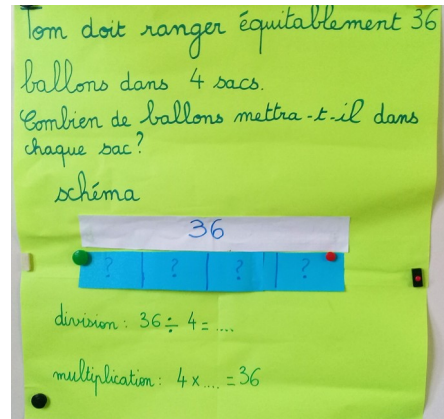 Tom doit ranger équitablement 36
ballons dans 4 sacs.
Combien de ballons mettra-t-il dans
chaque sac ?
schéma
36
? ? ? ?
division : 36 ÷ 4 = ....
multiplication : 4 x .... = 36